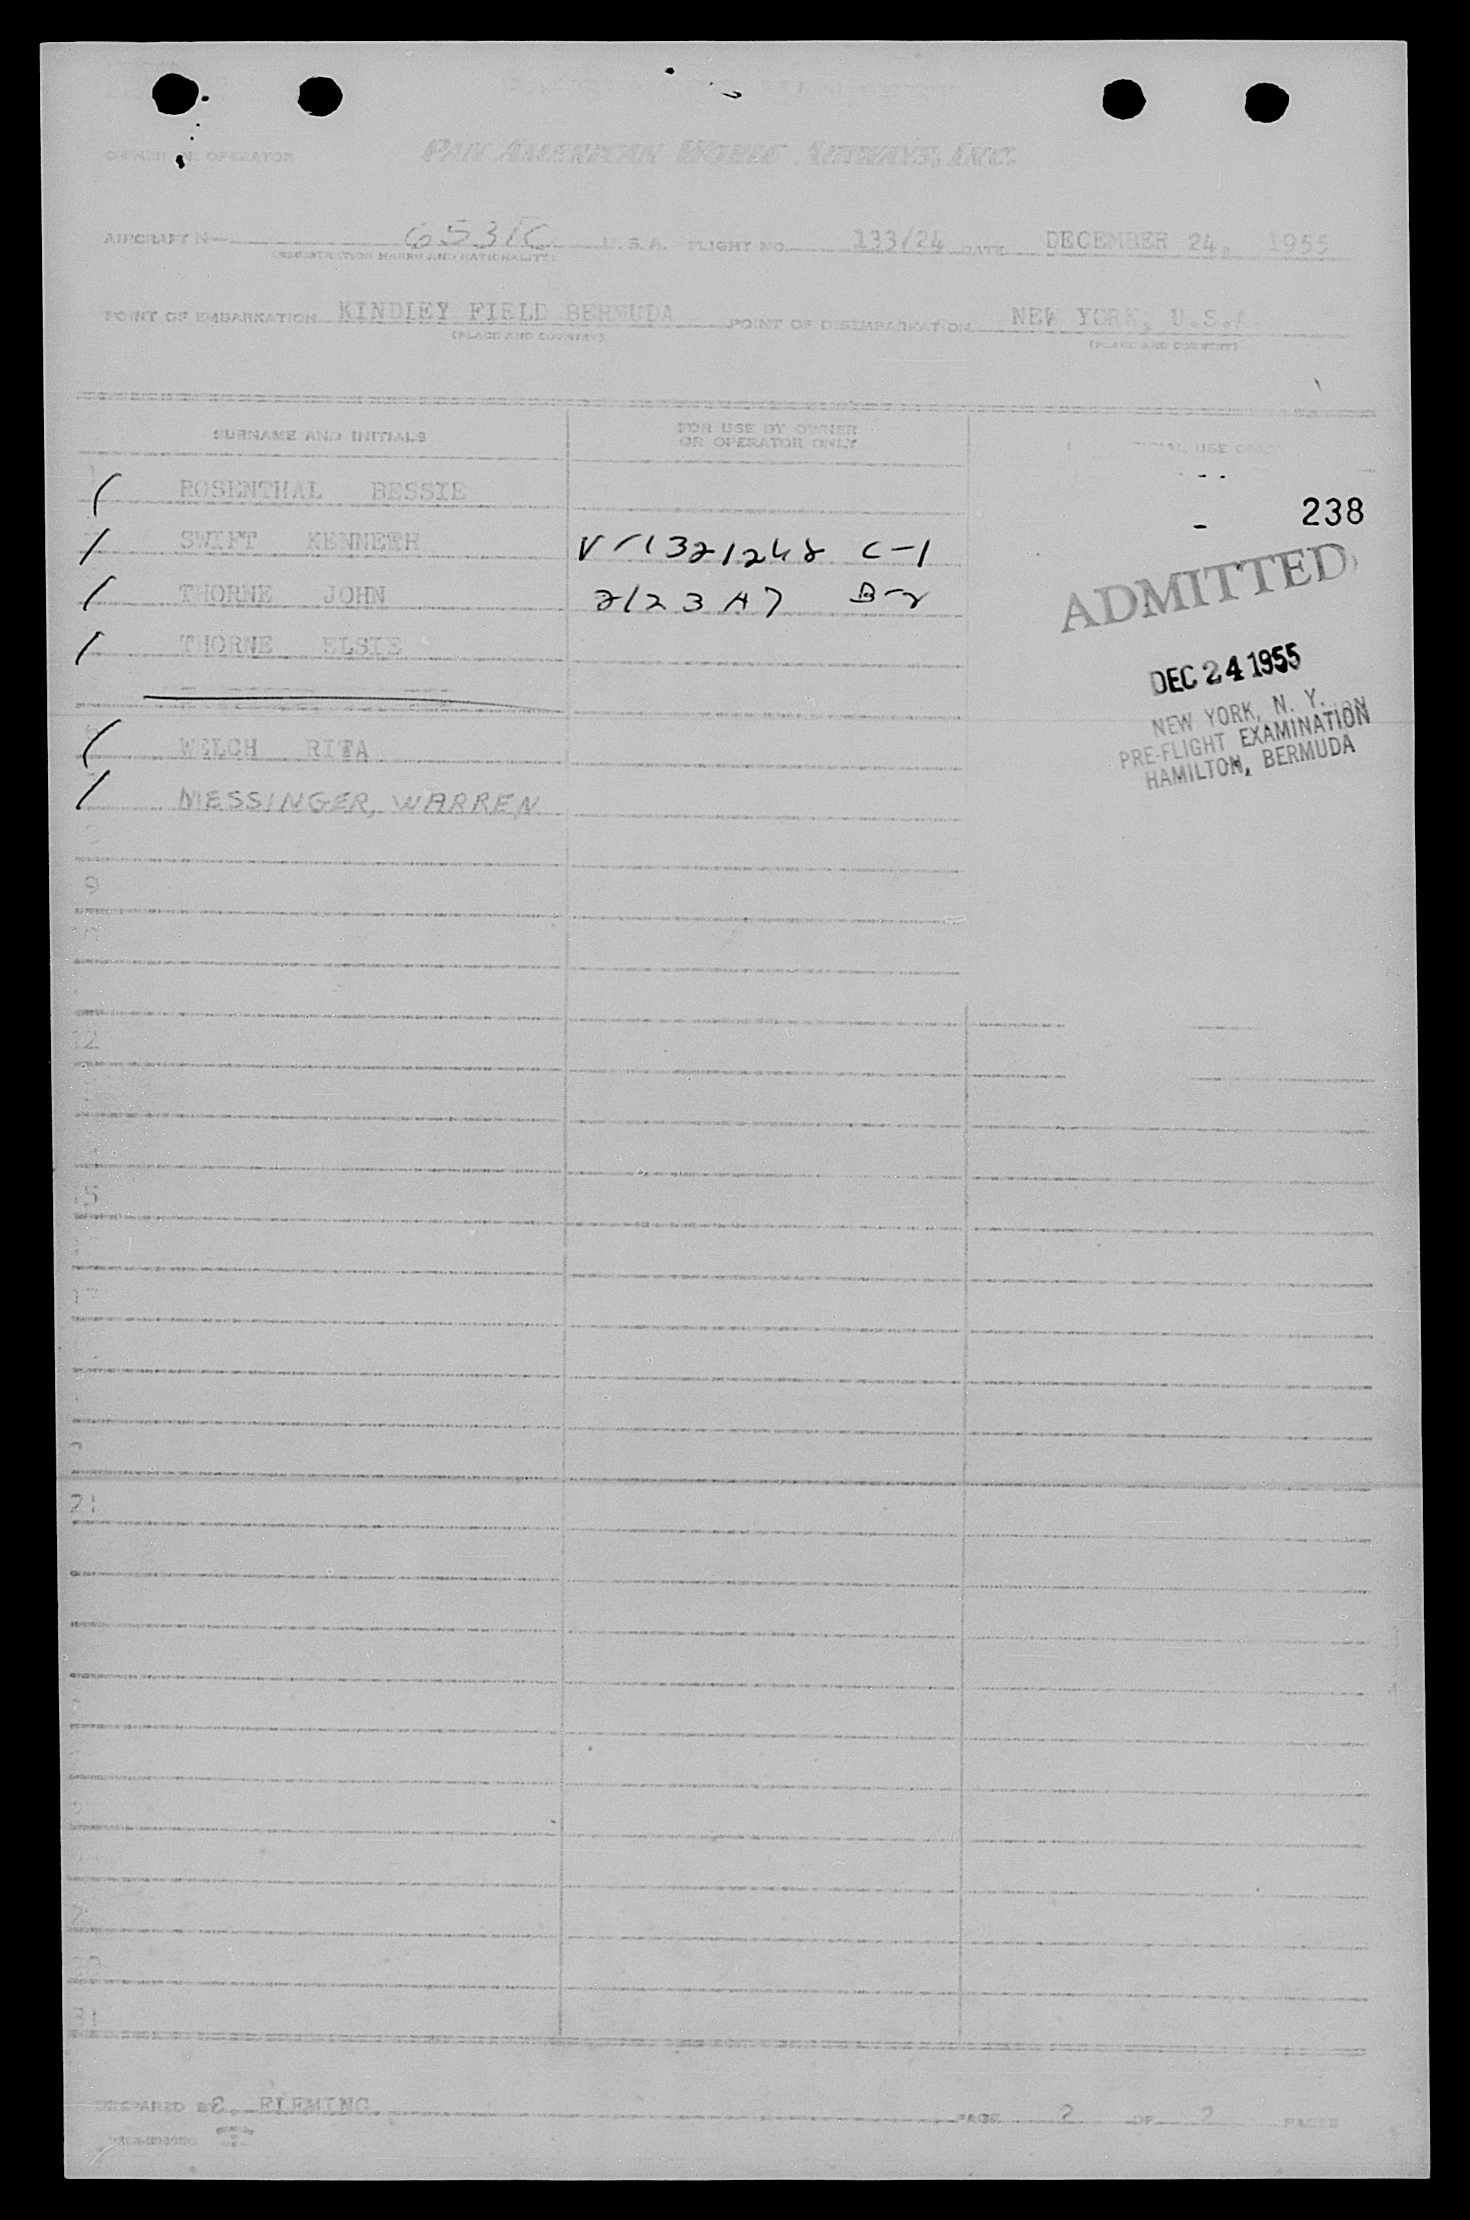 OWNER OR OPERATOR PAN AMERICAN WORLD AIRWAYS, INC.
AIRCRAFT N- 6531C U.S.A. FLIGHT NO. 133/24 DATE DECEMBER 24, 1955
(REGISTRATION MARKS AND NATIONALITY)
POINT OF EMBARKATION KINDLEY FIELD BERMUDA POINT OF DISEMBARKATION NEW YORK, U.S.A
(PLACE AND COUNTRY) (PLACE AND COUNTRY)
SURNAME AND INITIALS
FOR USE BY OWNER
OR OPERATOR ONLY
USE ONLY
ROSENTHAL BESSIE
238
SWIFT KENNETH V-1321248 C-1
THORNE JOHN 2123A7 B-2
THORNE ELSIE
ADMITTED
DEC 24 1955
NEW YORK, N. Y.
PRE-FLIGHT EXAMINATION
HAMILTON, BERMUDA
WELCH RITA
MESSINGER, WARREN
9
12
15
17
21
31
PREPARED BY FLEMING PAGE 2 OF 2 PAGES